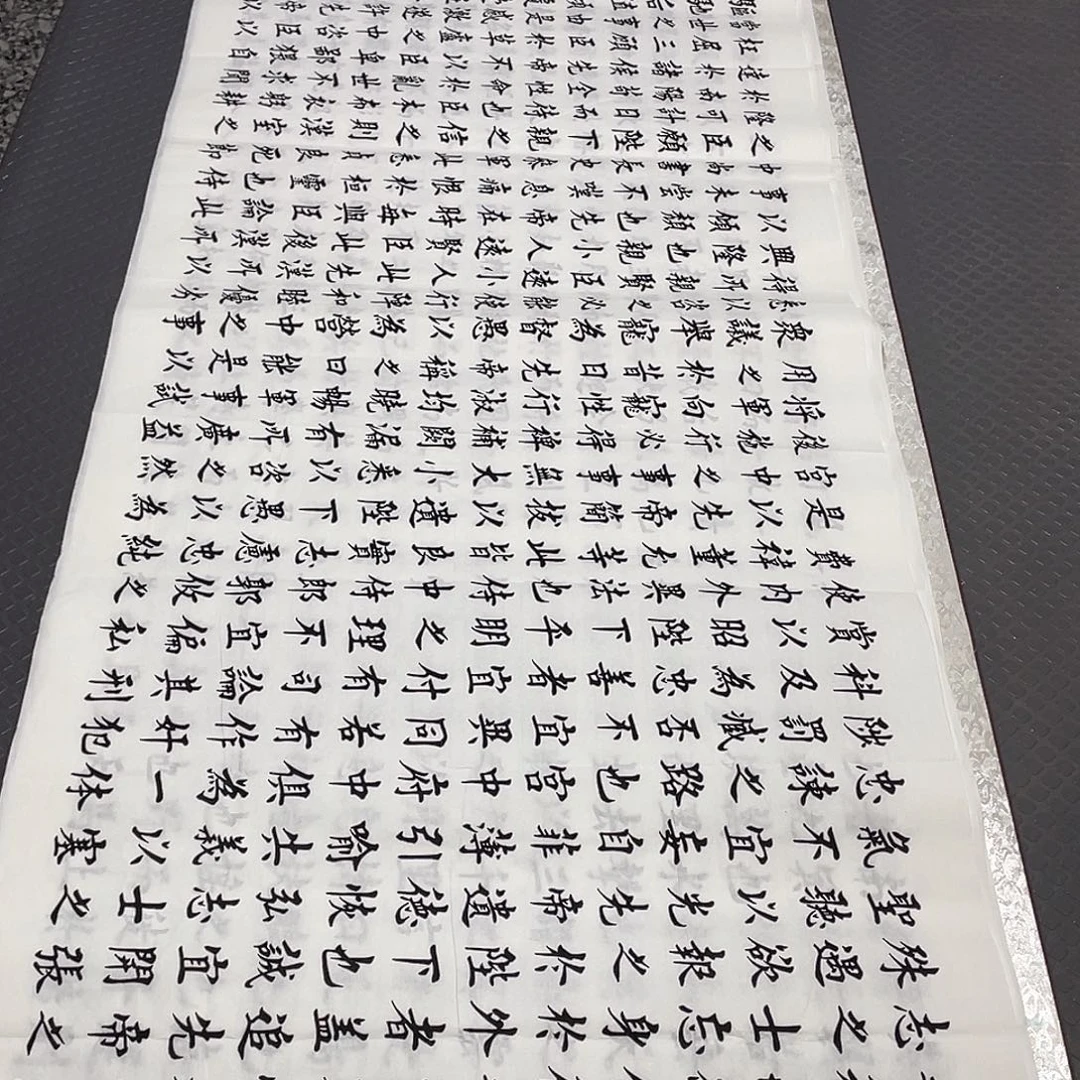 志之士忘身於外者蓋追先帝之
殊遇欲報之於陛下也誠宜開張
聖聽以光先帝遺德恢弘志士之
氣不宜妄自菲薄引喻失義以塞
忠諫之路也宮中府中俱為一体
陟罰臧否不宜異同若有作奸犯
科及為忠善者宜付有司論其刑
賞以昭陛下平明之理不宜偏私
使內外異法也侍中侍郎郭攸之
費禕董允等此皆良實志慮忠純
是以先帝簡拔以遺陛下愚以為
宮中之事事無大小悉以咨之然
後施行必得裨補闕漏有所廣益
將軍向寵性行淑均曉暢軍事試
用之於昔日先帝稱之曰能是以
眾議舉寵為督愚以為營中之事
悉以咨之必能使行陣和睦優劣
得所也親賢臣遠小人此先漢所以
興隆也親小人遠賢臣此後漢所
以傾頹也先帝在時每與臣論此
事未嘗不嘆息痛恨於桓靈也侍
中尚書長史參軍此悉貞良死節
之臣願陛下親之信之則漢室之
隆可計日而待也臣本布衣躬耕
於南陽苟全性命於亂世不求聞
達於諸侯先帝不以臣卑鄙猥自
枉屈三顧臣於草廬之中諮臣以
當世之事由是感激遂許先帝以